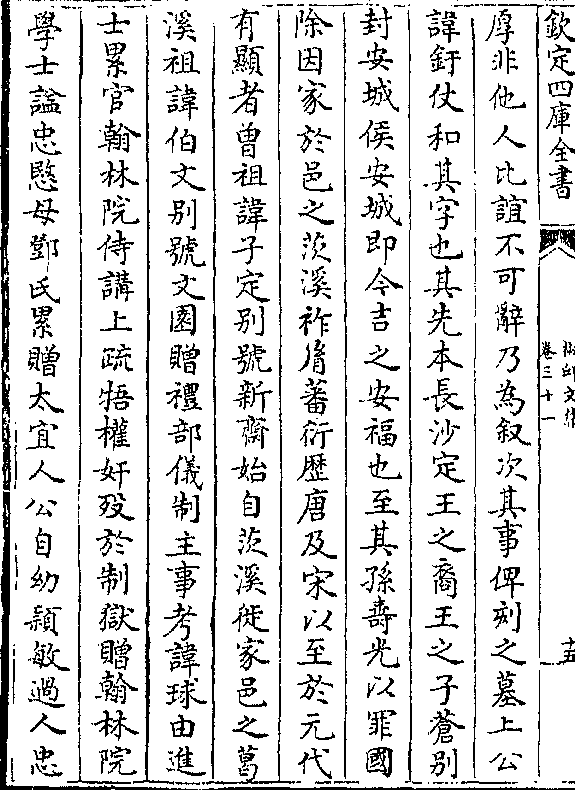 欽定四庫全書
卷三十一
十五
厚非他人比誼不可辭乃為叙次其事俾刻之墓上公
諱釪仗和其字也其先本長沙定王之裔王之子蒼别
封安城侯安城即今吉之安福也至其孫壽光以罪國
除因家於邑之茨溪祚胤蕃衍歴唐及宋以至於元代
有顯者曾祖諱子定别號新齋始自茨溪徙家邑之葛
溪祖諱伯文别號文園贈禮部儀制主事考諱球由進
士累官翰林院侍講上疏牾權奸殁於制獄贈翰林院
學士諡忠愍母鄧氏累贈太宜人公自幼穎敏過人忠